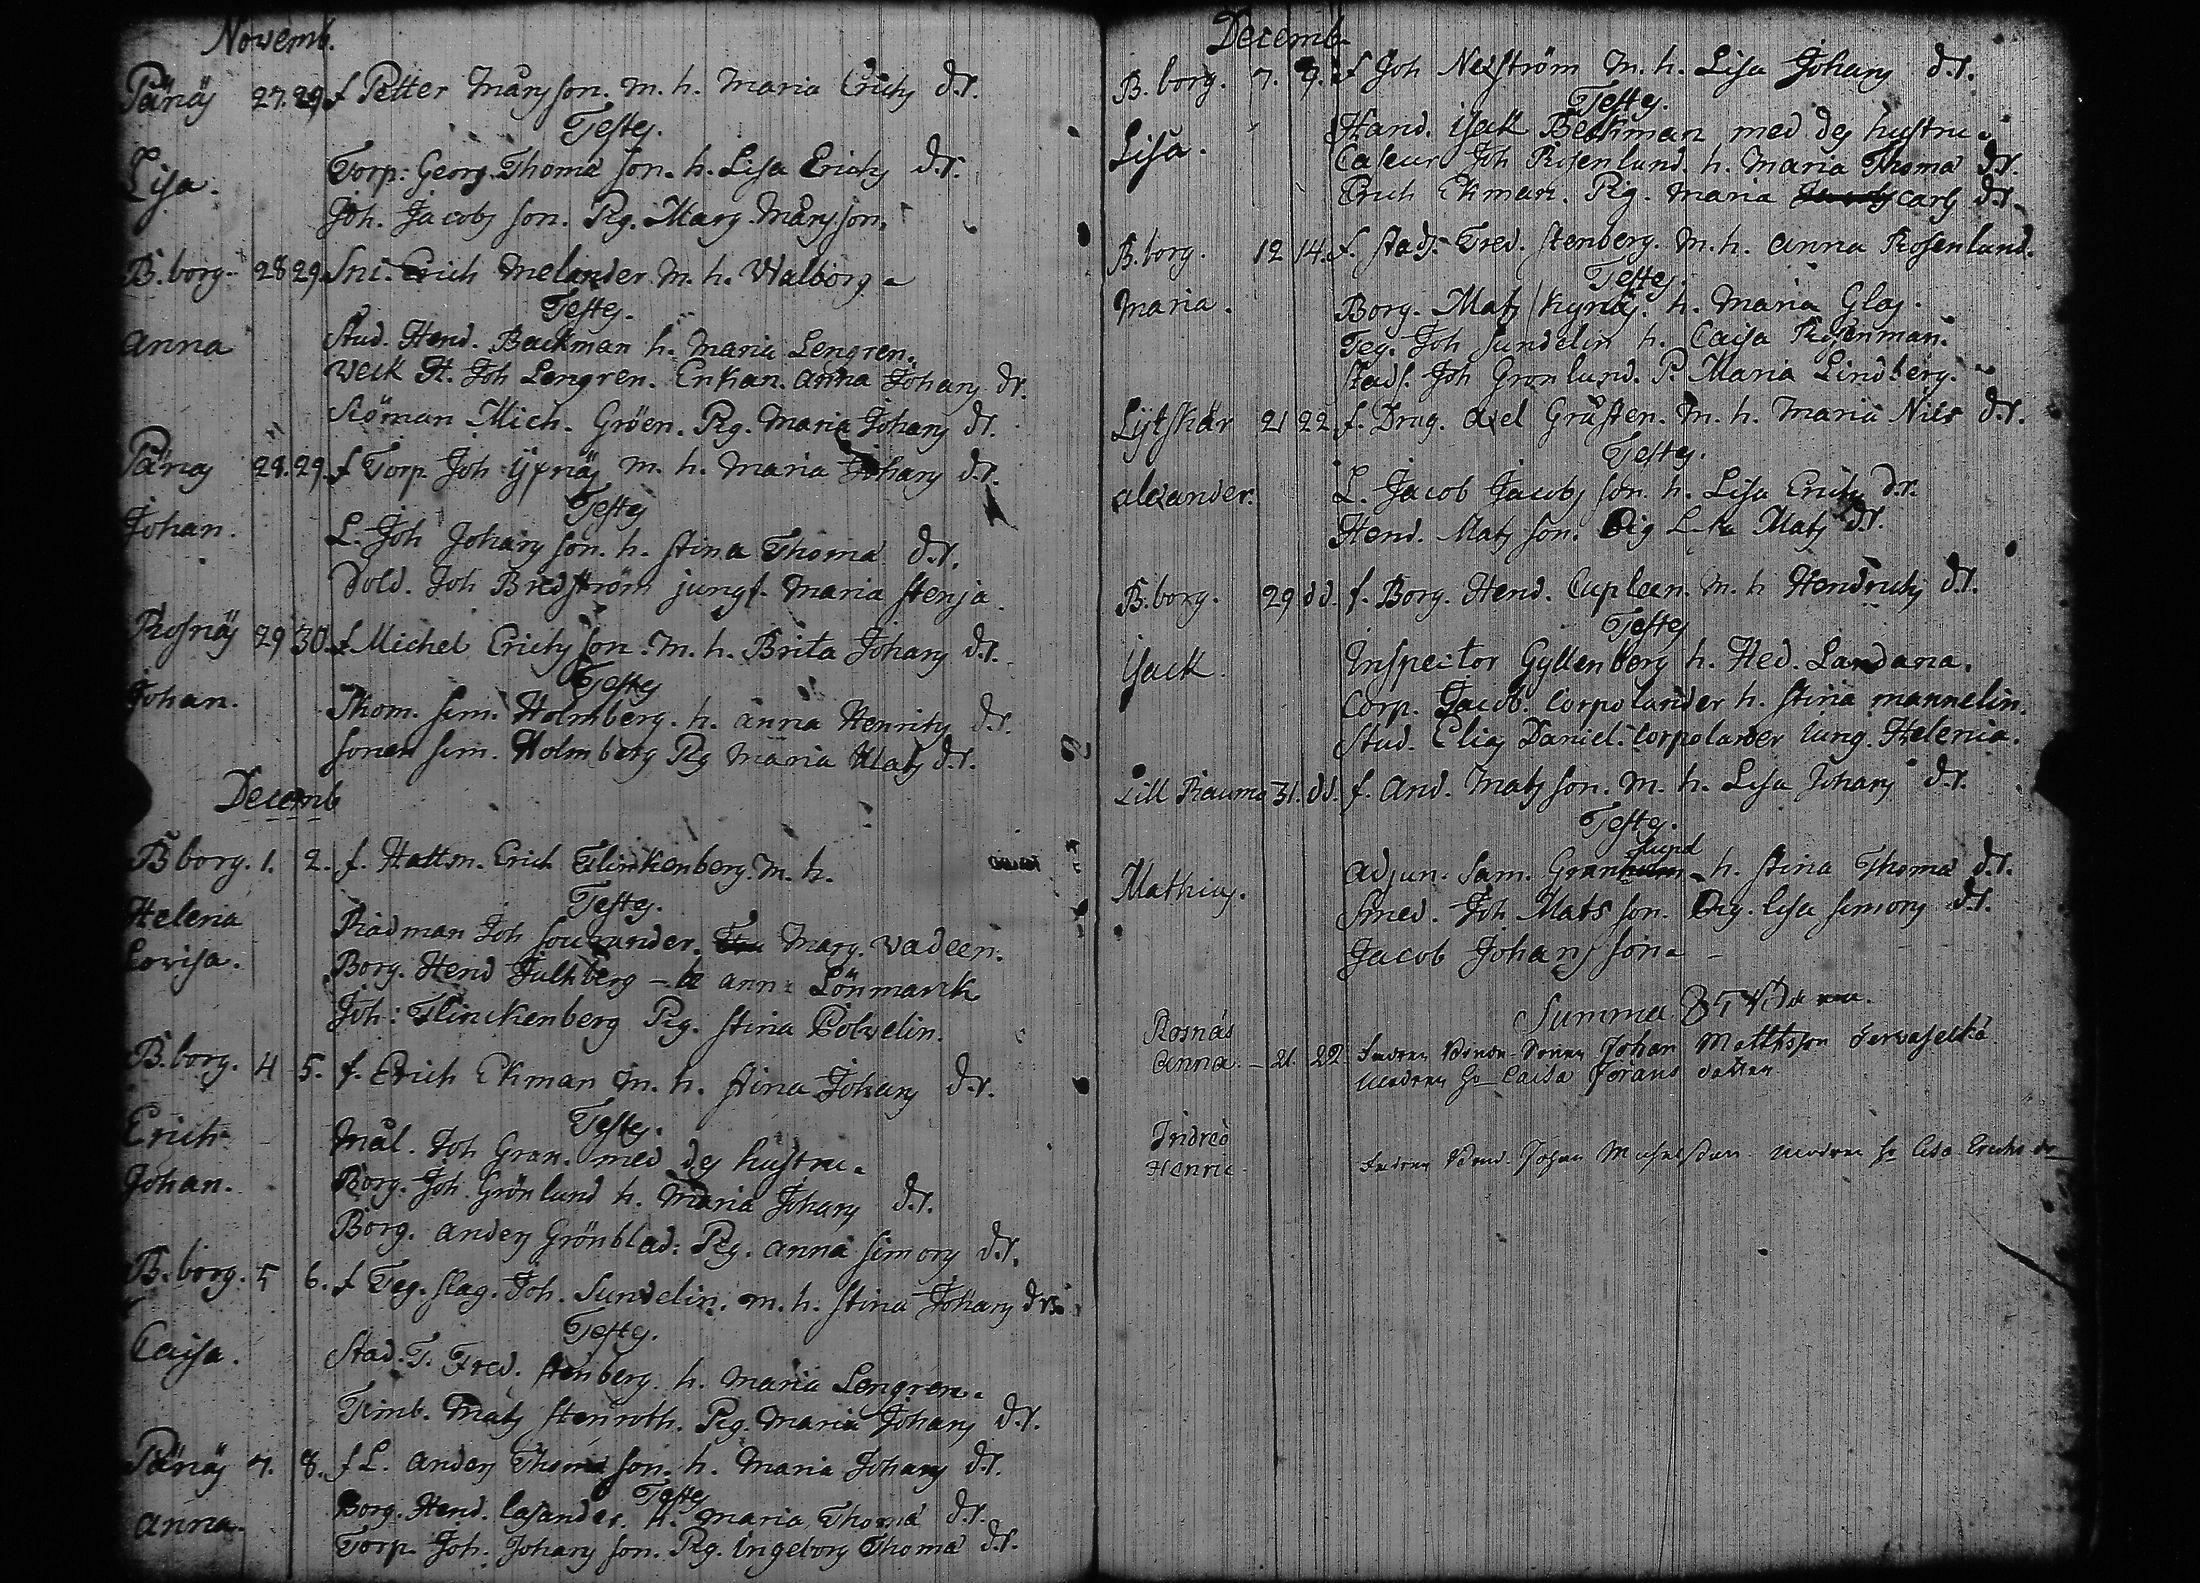 Novemb.
Pänäs 27. 29. f Petter Mårsson. m. h. Maria Erichs d.r.
Testes.
Lisa. Torp: Georg. Thoma son. h. Lisa Erichs d.r.
Joh. Jacobs son. Pig. Marg. Mårsson.
B. borg. 28 29. Sni. Erich Melander m. h. Walborg
Testes.
Anna Stud. Hend. Backman h. Maria Lengren.
Joh Lengren. Enkan. Anna Johans dr.
Siöman Mich. Gröen. Pig. Maria Johans dr.
Pänäs 28. 29. f Torp. Joh m. h. Maria Johans d.r.
Testes
Johan. L. Joh Johans son. h. Stina Thoma d.r.
Joh Bredström jungf. Maria Stenja.
Rosnäs 29 30. f Michel Erichs son. m. h. Brita Johans d.r.
Testes
Johan. Thom. Sim. Holmberg. h. Anna Henrichs d.r.
Sonen Sim. Holmberg Pig Maria Mats d.r.
Decemb
B borg. 1. 2. f. Hattm. Erich Flinkenberg. m. h.
Testes.
Helena Rådman Joh Marg. Vadeen.
Lovisa. Borg. Hend Falkberg h Anna Lönmarck
Joh: Flinckenberg Pig. Stina Polvelin.
B. borg. 4 5. f. Erich Ekman m. h. Stina Johans d.r.
Testes.
Erich Mål. Joh Gran. med des hustru.
Johan. Borg. Joh. Grönlund h. Maria Johans d.r.
Borg. Anders Grönblad: Pig. Anna Simons d.r.
B. borg. 5 6. f Teg. slag. Joh. Sundelin. m. h. Stina Johans dr.
Testes.
Caisa. Stad. T. Fred. Stenberg. h. Maria Lengren.
Timb. Mats Stenroth. Pig. Maria Johans d.r.
Pänäs 7. 8. f L. Anders Thoma son. h. Maria Johans d.r.
Testes
Anna. Borg. Hend. Casander. h. Maria Thoma d.r.
Torp. Joh. Johans son. Pig. Ingeborg Thoma d.r.
Decemb
B. borg. 7. 9. f Joh Neiström m. h. Lisa Johans d.r.
Testes.
Lisa. Hand. Isack Beckman med des hustru
Joh Risenlund. h. Maria Thoma d.r.
Erich Ekman. Pig. Maria Carls d.r.
B. borg. 12 14. f. Stads. Fred. Stenberg. m. h. Anna Rosenlund.
Testes.
Maria. Borg. Mats Kynäs. h. Maria Glas.
Teg. Joh Sundelin h. Caisa Risenman.
Stads. Joh Gronlund. P. Maria Lindberg.
Lytskär 21 22. f. Drag. Axel Gråsten. m. h. Maria Nils d.r.
Testes.
Alexander. L. Jacob Jacobs son. h. Lisa Erichs d.r.
Hend. Mats son. Pig Mats d.r.
B. borg. 29 dd. f. Borg. Hend. Cupleen. m. h Hendrichs d.r.
Testes
Isack. Inspector Gyllenberg h. Hed. Landana.
Corp. Jacob. Corpolander h. Stina Mannelin.
Stud. Elias Daniel. Corpolander Jung. Helenia.
Lill Raumo 31. dd. f. And. Mats son. m. h. Lisa Johans d.r.
Testes.
lund
Mathias. Adjun. Sam. Gran h. Stina Thoma d.r.
Smed. Joh Mats son. Pig. Lisa Simons d.r.
Jacob Johans son.
Summa
Rosnäs
Anna. 21 22 Fadren Bonde Sonen Johan Matthsson
Modren h Caisa Jorans dotter
Fridred
Henric. Fadren Bond. Johan Modren h Lisa Erichs dr